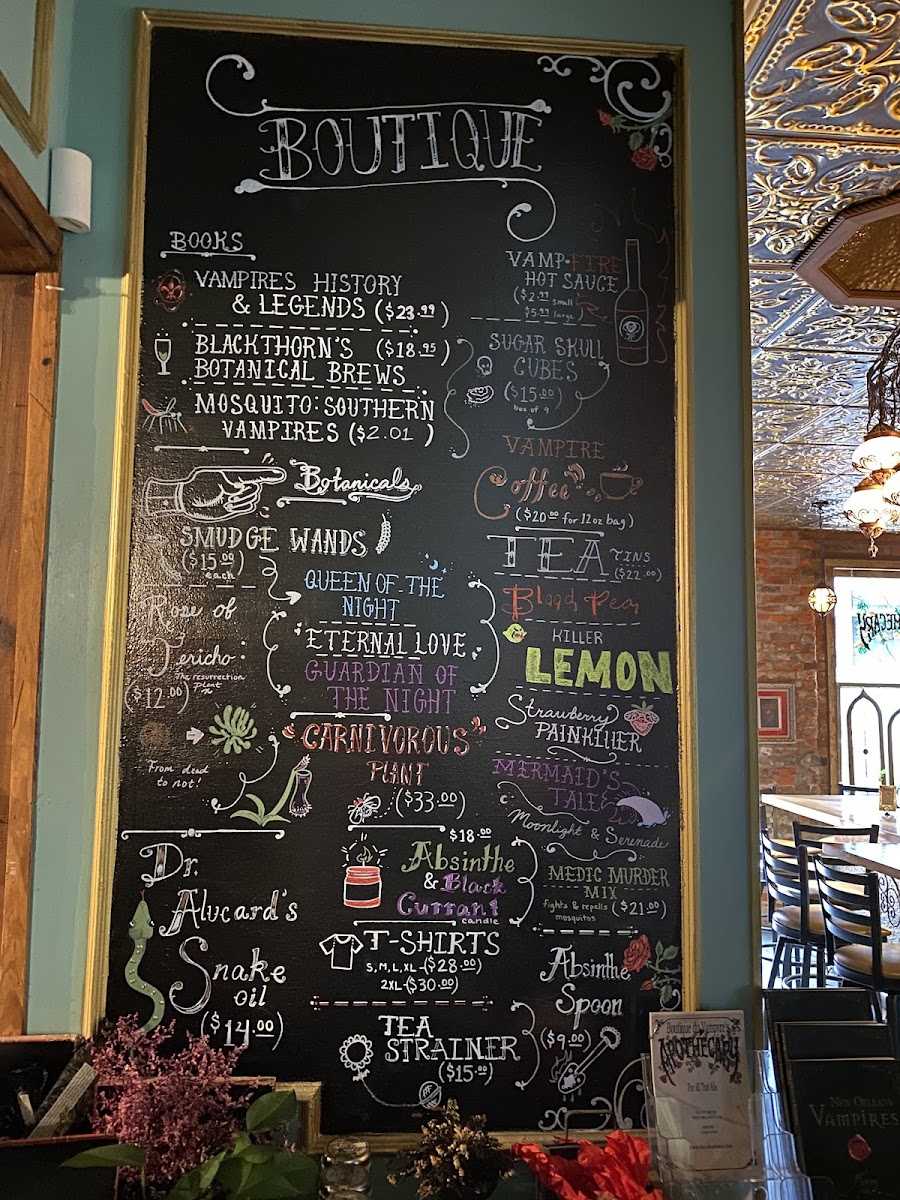 BOUTIQUE
BOOKS
VAMPIRES HISTORY
& LEGENDS ($23.99)
BLACKTHORN'S ($18.95)
BOTANICAL BREWS
MOSQUITO: SOUTHERN
VAMPIRES ($2.01)
Botanicals
SMUDGE WANDS
($15.00)
each
QUEEN OF THE
NIGHT
ETERNAL LOVE
GUARDIAN OF
THE NIGHT
Rose of
Jericho:
The resurrection
plant
($12.00)
From dead
to not!
"CARNIVOROUS"
PLANT
($33.00)
Dr.
Alucard's
Snake
oil
($14.00)
$18.00
Absinthe
& Black
Currant
candle
T-SHIRTS
S, M, L, XL - ($28.00)
2XL - ($30.00)
TEA
STRAINER
($15.00)
VAMP-FIRE
HOT SAUCE
($2.99 small
$5.99 large)
SUGAR SKULL
CUBES
($15.00)
box of 9
VAMPIRE
Coffee
($20.00 for 12oz bag)
TEA TINS
($22.00)
Blood Pear
KILLER
LEMON
Strawberry
PAINKILLER
MERMAID'S
TALE
Moonlight & Serenade
MEDIC MURDER
MIX
fights & repells
mosquitos
($21.00)
Absinthe
Spoon
($9.00)
Boutique du Vampyre's
APOTHECARY
For All That Ails
NEW ORLEANS
VAMPIRES